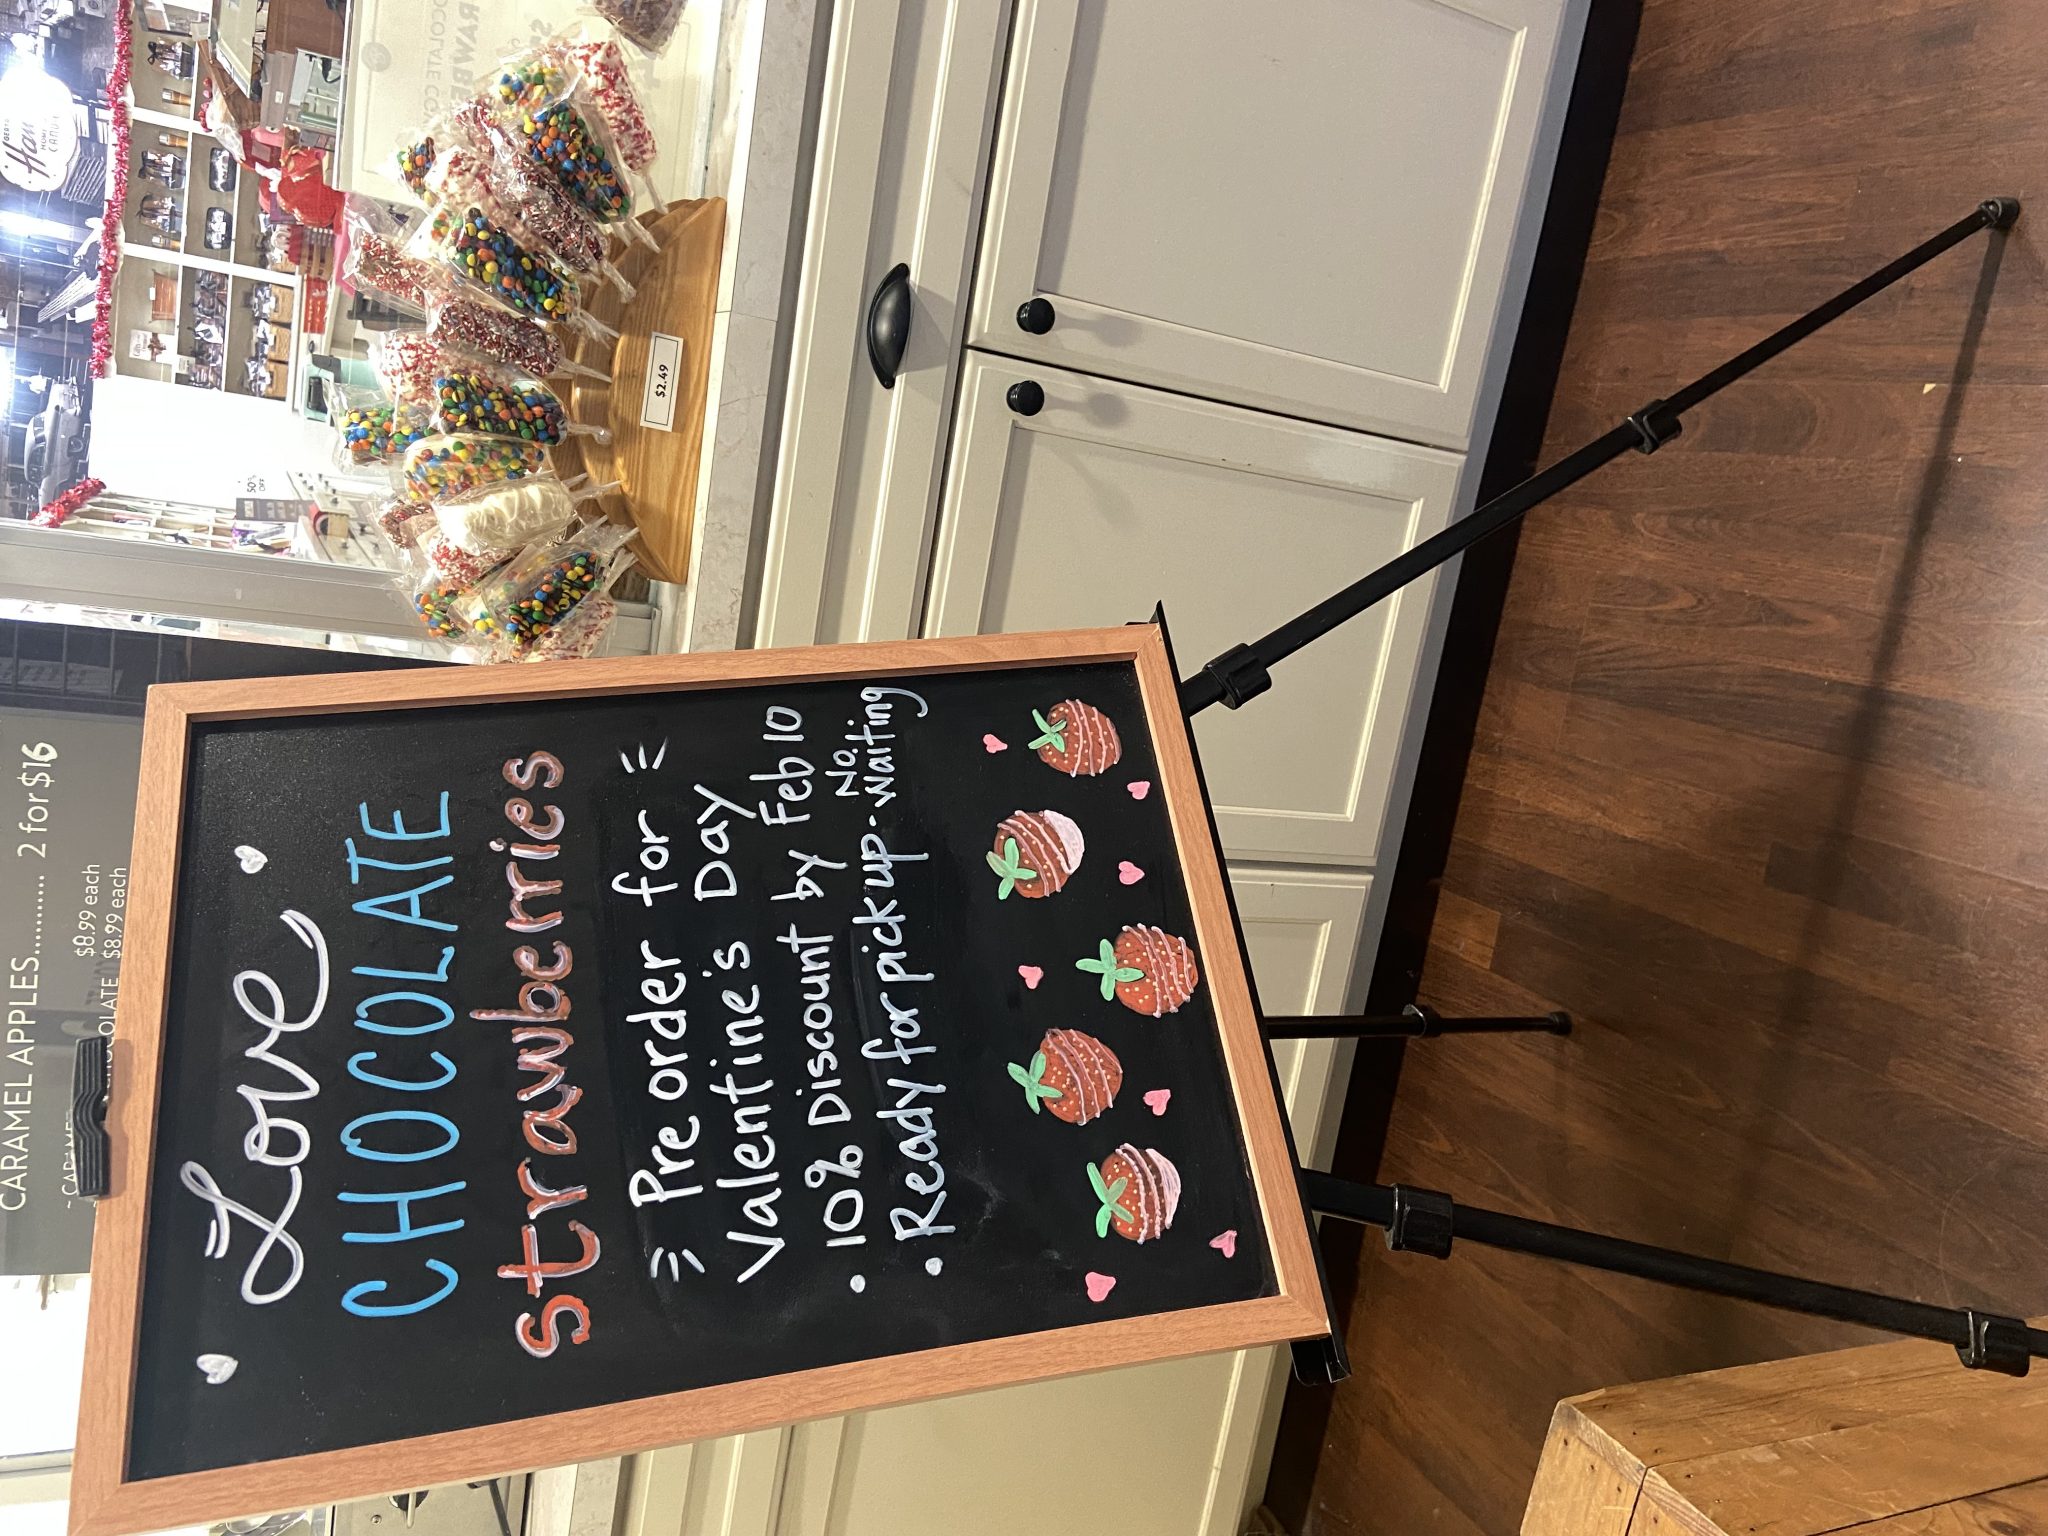 Love
CHOCOLATE
strawberries
Preorder for
Valentine's Day
• 10% Discount by Feb 10
• Ready for pickup - No
waiting
CARAMEL APPLES.......... 2 for $16
$8.99 each
$8.99 each
$2.49
50%
OFF